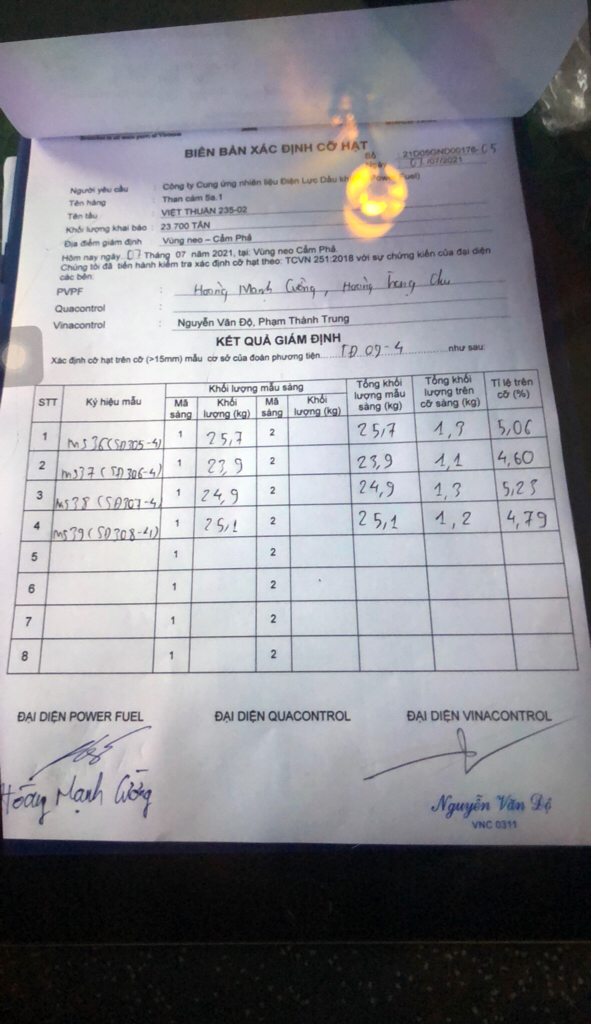 BIÊN BẢN XÁC ĐỊNH CỠ HẠT
Số 21D05GND00176-05
Ngày 07/07/2021
Người yêu cầu : Công ty Cung ứng nhiên liệu Điện Lực Dầu Fuel)
Tên hàng : Than cám 5a.1
Tên tàu : VIỆT THUẬN 235-02
Khối lượng khai báo : 23 700 TẤN
Địa điểm giám định : Vùng neo – Cẩm Phả
Hôm nay ngày 07 Tháng 07 năm 2021, tại: Vùng neo Cẩm Phả.
Chúng tôi đã tiến hành kiểm tra xác định cỡ hạt theo: TCVN 251:2018 với sự chứng kiến của đại diện
các bên:
PVPF : Hoàng Mạnh Cường, Hoàng Trung
Quacontrol :
Vinacontrol : Nguyễn Văn Độ, Phạm Thành Trung
KẾT QUẢ GIÁM ĐỊNH
Xác định cỡ hạt trên cỡ (>15mm) mẫu cơ sở của đoàn phương tiện TD 09-4 như sau:
STT Ký hiệu mẫu Khối lượng mẫu sàng Tổng khối lượng mẫu sàng (kg) Tổng khối lượng trên cỡ sàng (kg) Tỉ lệ trên cỡ (%)
Mã sàng Khối lượng (kg) Mã sàng Khối lượng (kg)
1 MS36(SD305-4) 1 25,7 2 25,7 1,3 5,06
2 MS37(SD306-4) 1 23,9 2 23,9 1,1 4,60
3 MS38(SD307-4) 1 24,9 2 24,9 1,3 5,23
4 MS39(SD308-4) 1 25,1 2 25,1 1,2 4,79
5 1 2
6 1 2
7 1 2
8 1 2
ĐẠI DIỆN POWER FUEL ĐẠI DIỆN QUACONTROL ĐẠI DIỆN VINACONTROL
Hoàng Mạnh Cường
Nguyễn Văn Độ
VNC 0311